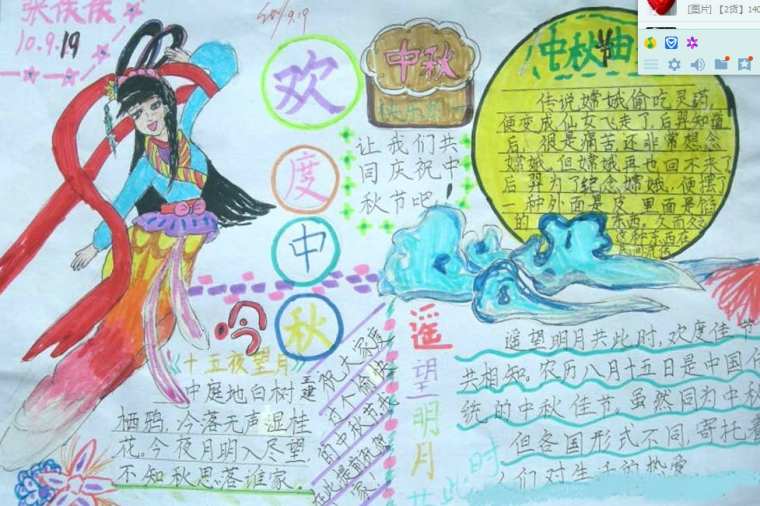 10.9.19
欢
度
中
秋
中秋
快乐
让我们共
同庆祝中
秋节吧!
中秋由
传说嫦娥偷吃灵药,
便变成仙女飞走了后羿知道
后,很是痛苦还非常想念
嫦娥。但嫦娥再也回不来了
后羿为了纪念嫦娥,便摆了
一种外面是皮,里面是馅
的
吟
《十五夜望月》
王建
中庭地白树
栖鸦,冷落无声湿桂
花。今夜月明入尽望,
不知秋思落谁家。
祝大家度
过个愉快
的中秋节我
在此提前祝贺
大家!
遥
望
明
月
共此时
遥望明月共此时,欢度佳节
共相知。农历八月十五日是中国传
统的中秋佳节。虽然同为中秋
但各国形式不同,寄托着
人们对生活的热爱
[图片]